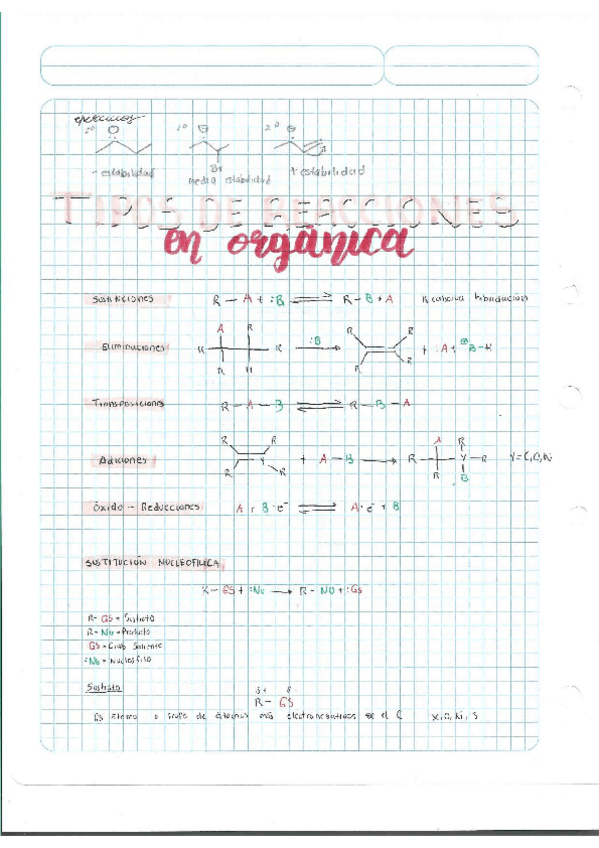 ejercicios
2º 1º 2º
⊖ ⊖ ⊖
Br
- estabilidad media estabilidad + estabilidad
TIPOS DE REACCIONES
en orgánica
Sustituciones R — A + :B ⇌ R — B + A R cambia hibridación
Eliminaciones :B → + :A + ⊕B — H
Transposiciones R — A — B ⇌ R — B — A
Adiciones + A — B → Y = C, O, N
Óxido - Reducciones A + B·e⁻ ⇌ A·e⁻ + B
SUSTITUCIÓN NUCLEOFÍLICA
R — GS + :Nu → R - NU + :GS
R- GS = Sustrato
R- Nu = Producto
GS = Grupo Saliente
:Nu = Nucleófilo
Sustrato
δ+ δ-
R — GS
GS átomo o grupo de átomos más electronegativos que el C X, O, N, S